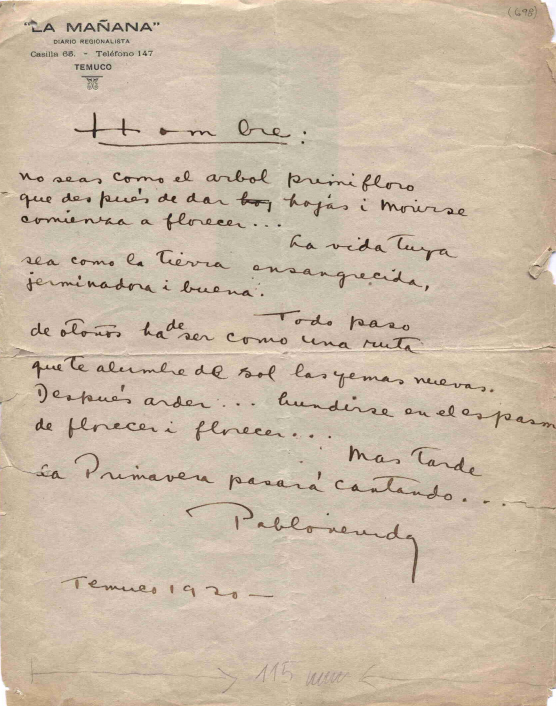 (698)
"LA MAÑANA"
DIARIO REGIONALISTA
Casilla 65. - Teléfono 147
TEMUCO
Hombre:
no seas como el arbol primifloro
que después de dar hojas i morirse
comienza a florecer...
La vida tuya
sea como la tierra ensangrecida,
jerminadora i buena.
Todo paso
de otoños ha de ser como una ruta
que te alumbre de sol las yemas nuevas.
Después arder... hundirse en el espasm
de florecer i florecer...
Mas tarde
La Primavera pasará cantando....
Pablo neruda
Temuco 1920 —
115 mm